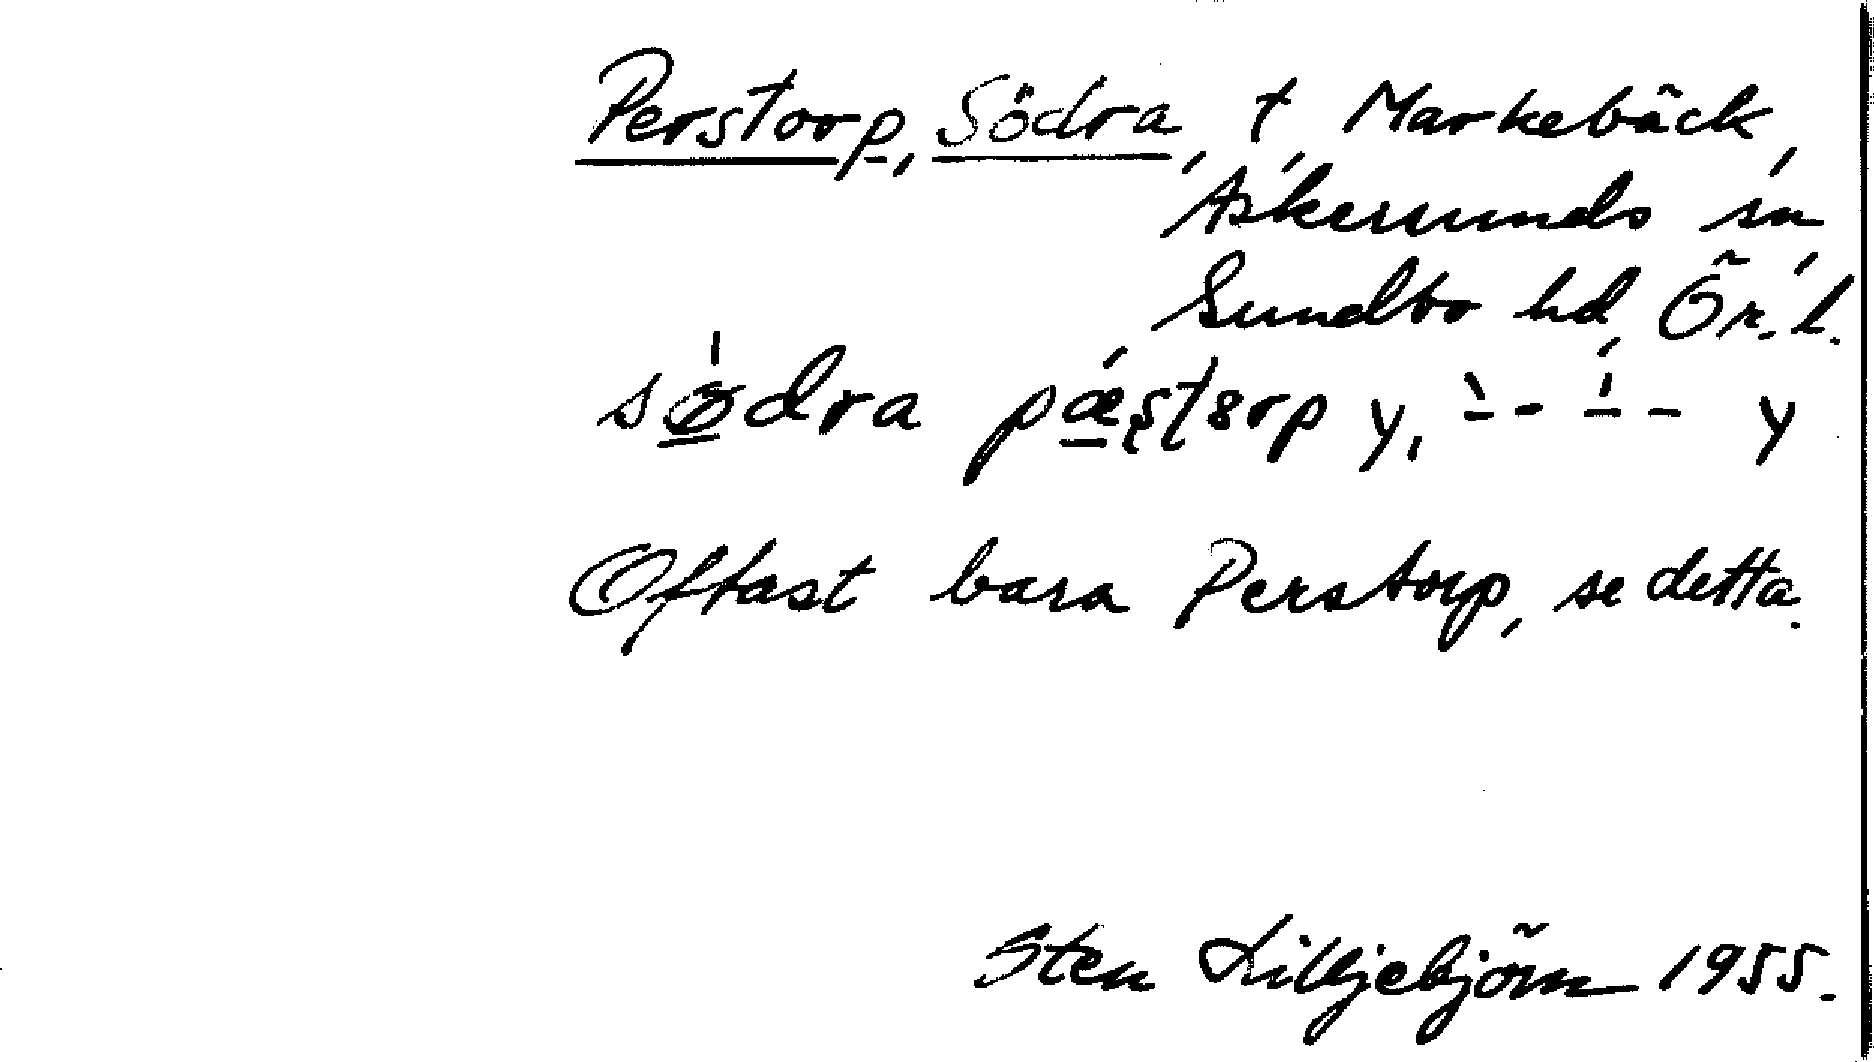 Perstorp, Södra, t, Markebäck,
Askersunds sn,
Sundbo hd, Ör. l.
södra pæstorp y, `- - ´- - y
Oftast bara Perstorp, se detta.
Sten Lilljebjörn 1955.